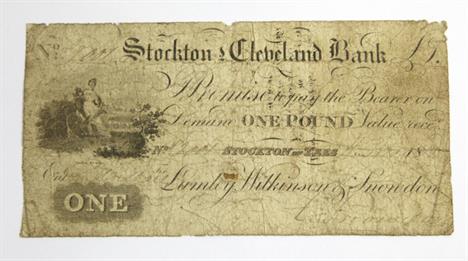 No
Stockton & Cleveland Bank £1.
I Promise to pay the Bearer on
Demand ONE POUND Value recd
No STOCKTON on TEES 18
Entd
Lumley, Wilkinson & Snowdon
ONE